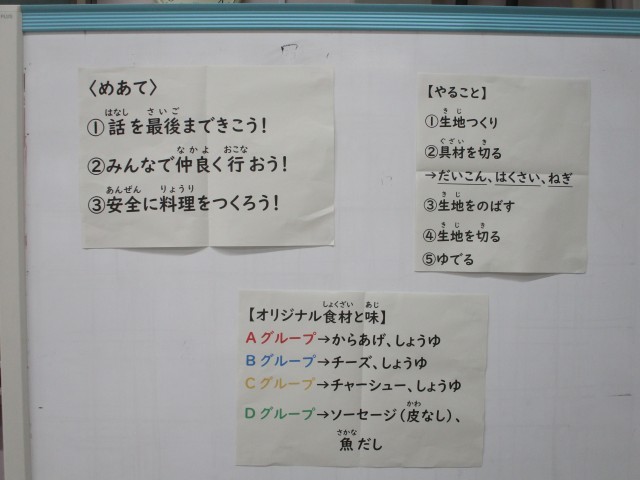 〈めあて〉
①話を最後まできこう！
②みんなで仲良く行おう！
③安全に料理をつくろう！
【やること】
①生地つくり
②具材を切る
→だいこん、はくさい、ねぎ
③生地をのばす
④生地を切る
⑤ゆでる
【オリジナル食材と味】
Aグループ→からあげ、しょうゆ
Bグループ→チーズ、しょうゆ
Cグループ→チャーシュー、しょうゆ
Dグループ→ソーセージ（皮なし）、
魚だし